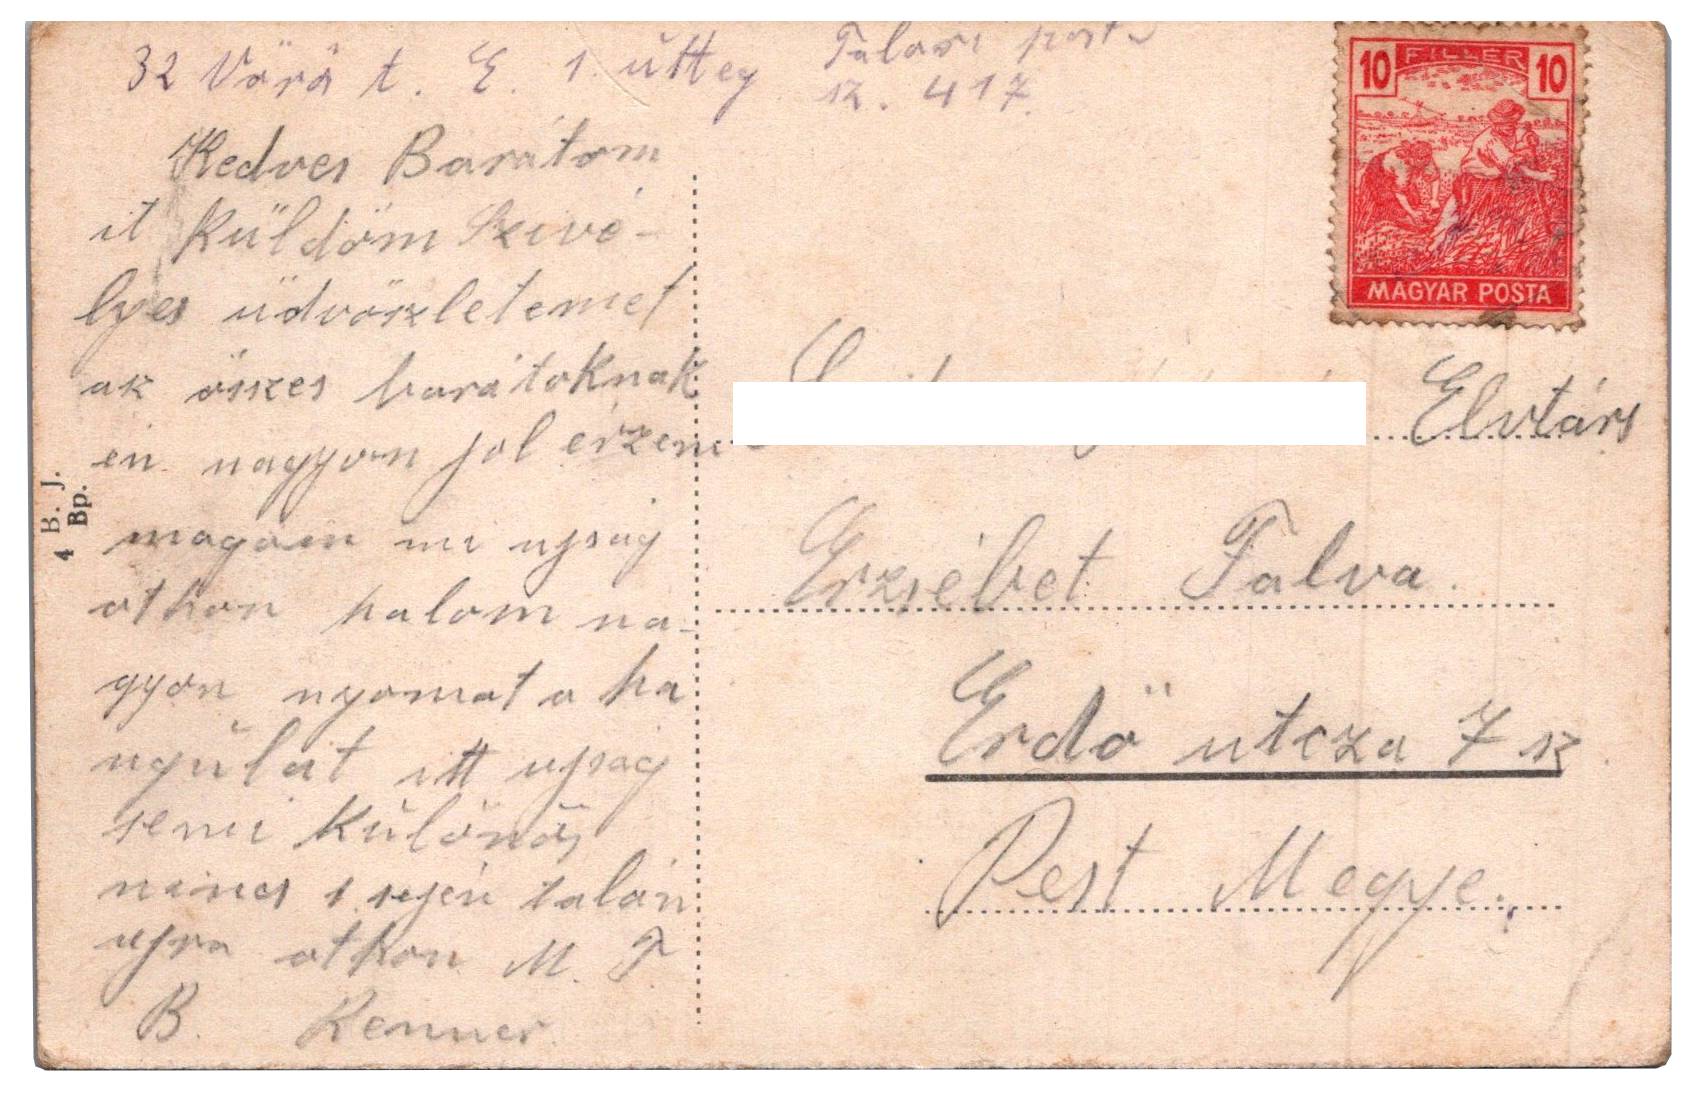 32 Vörö t. E. 1. ütteg
Talari posta
sz. 417.
Kedves Barátom
it Küldöm Szivé-
lyes üdvözletemet
az öszes barátoknak
én nagyon jol érzem
magam mi ujság
othon halom na-
gyon nyomat a ha
ngulat itt ujság
semi Külonös
nincs
talán
ujra othon M. T
B. Renner
4 B. J.
Bp.
10 FILLÉR 10
MAGYAR POSTA
Elvtárs
Erzsébet Falva.
Erdö utcza 7 sz.
Pest Megye.